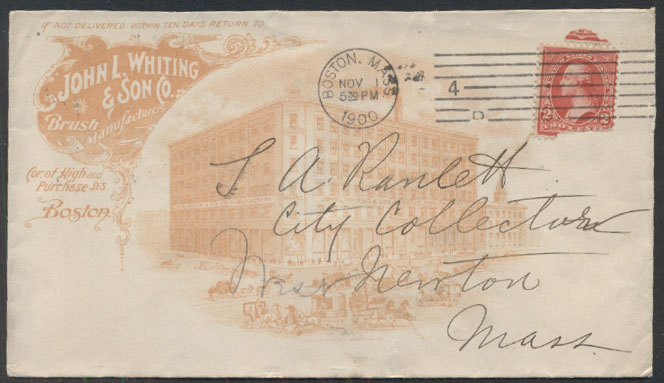 IF NOT DELIVERED WITHIN TEN DAYS RETURN TO
JOHN L. WHITING
& SON CO.
Brush
Manufacturers
Cor. of High and
Purchase Sts.
Boston.
BOSTON, MASS
NOV 1
530 PM
1900
4
D
2 2
TWO CENTS
S A Ranlett
City Collector
West Newton
Mass